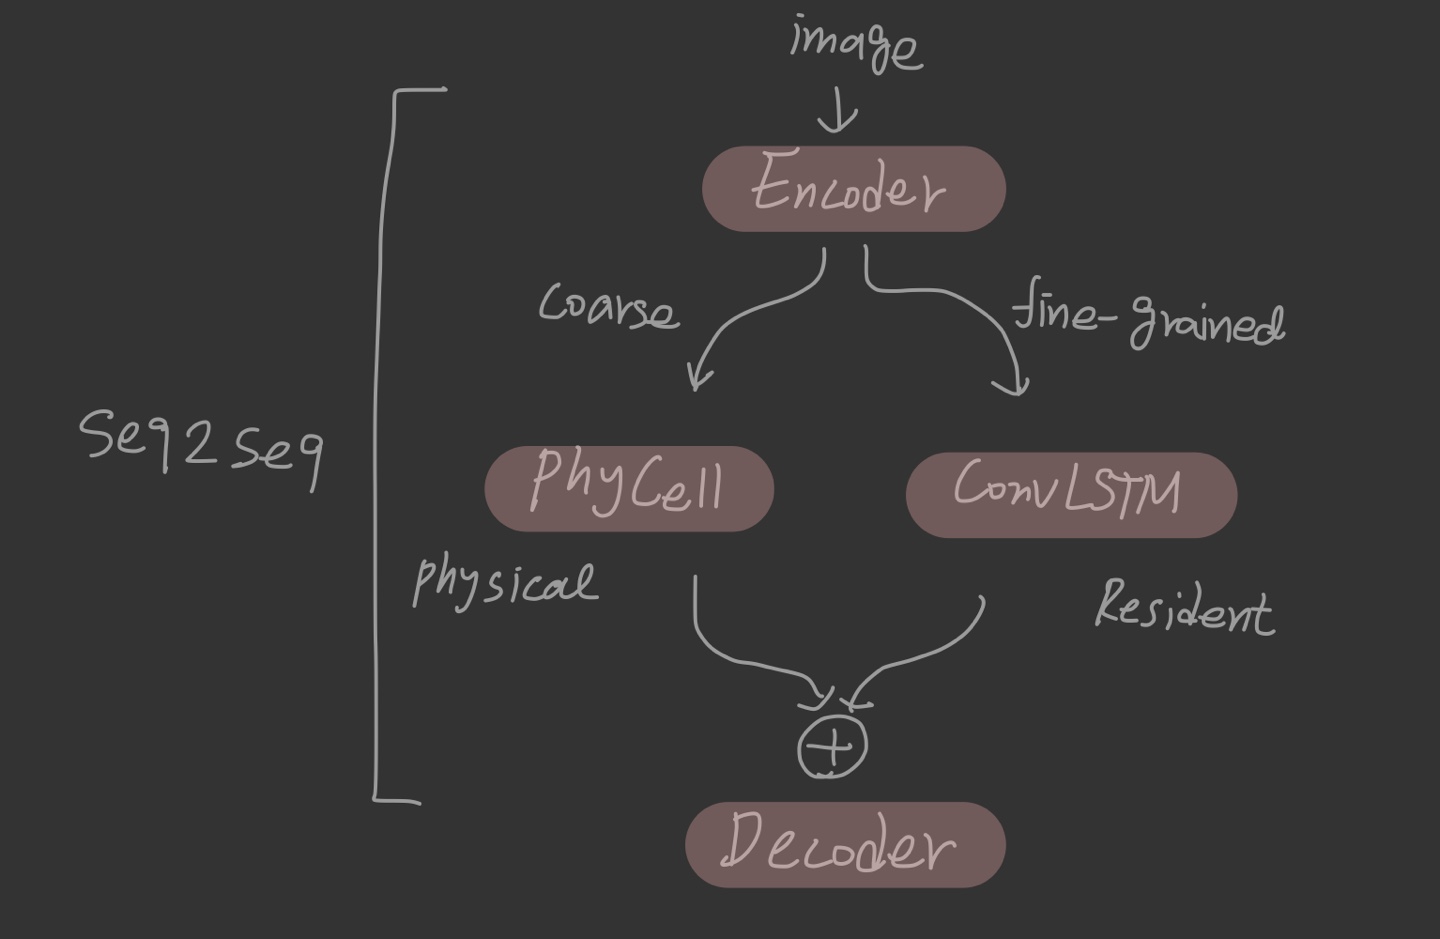 image
Encoder
Coarse
fine-grained
Seq2Seq
PhyCell
ConvLSTM
physical
Resident
+
Decoder